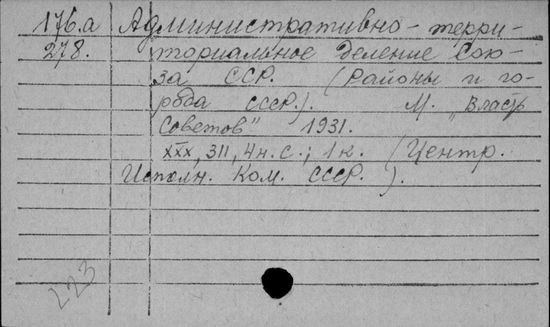 176.а Административно-терри-
278. ториальное деление Сою-
за ССР. (Районы и го-
рода СССР.). М. "Власть
Советов" 1931.
XXX, 311, 4 н.с.; 1 к. (Центр.
Исполн. Ком. СССР.).
223